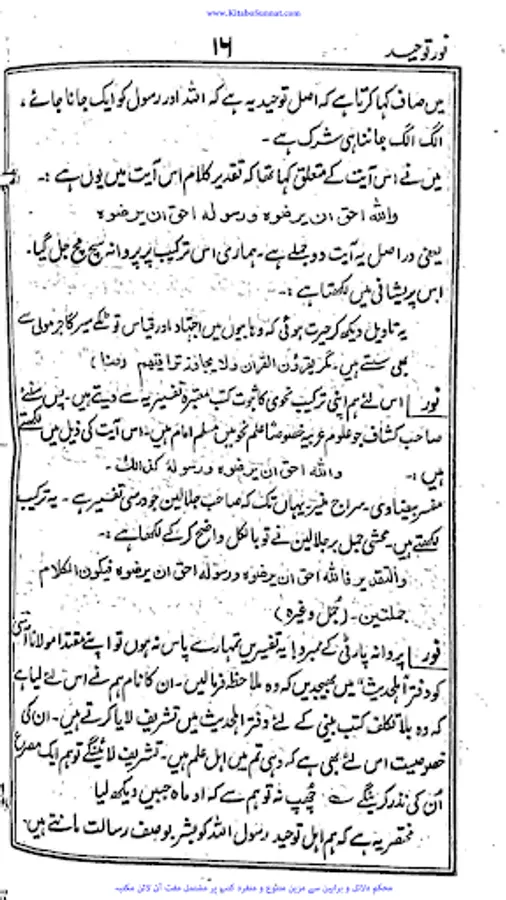 www.KitaboSunnat.com
نور توحید
۱۶
میں صاف کہا کرتا ہے کہ اصل توحید یہ ہے کہ اللہ اور رسول کو ایک جانا جائے،
الگ الگ جاننا ہی شرک ہے۔
میں نے اس آیت کے متعلق کہا تھا کہ تقدیر کلام اس آیت میں یوں ہے :۔
واللہ احق ان یرضوہ ورسولہ احق ان یرضوہ
یعنی در اصل یہ آیت دو جملے ہے۔ ہماری اس ترکیب پر پروانہ سچ مچ جل گیا۔
اس پریشانی میں لکھتا ہے :۔
یہ تاویل دیکھ کر حیرت ہوئی کہ وہابیوں میں اجتہاد اور قیاس تو ٹکے سیر گاجر مولی سے
بھی سستے ہیں۔ یقرؤن القرآن ولا یجاوز تراقیھم
نور اس لئے ہم اپنی ترکیب نحوی کا ثبوت کتب معتبرہ تفسیریہ سے دیتے ہیں۔ پس سنئے
صاحب کشاف جو علوم عربیہ خصوصاً علم نحو میں مسلم امام ہیں۔ اس آیت کی ذیل میں لکھتے
ہیں :۔ واللہ احق ان یرضوہ ورسولہ کذالک۔
مفسر بیضاوی۔ سراج منیر یہاں تک کہ صاحب جلالین جو درسی تفسیر ہے۔ یہ ترکیب
لکھتے ہیں۔ محشی جمل بر جلالین نے تو بالکل واضح کر کے لکھا ہے :۔
والتقدیر فاللہ احق ان یرضوہ ورسولہ احق ان یرضوہ فیکون الکلام
جملتین۔ (جمل وغیرہ)
نور پروانہ پارٹی کے ممبرو! یہ تفسیریں تمہارے پاس نہ ہوں تو اپنے مقتدا مولانا
کو دفتر اہلحدیث میں بھیجدیں کہ وہ ملاحظہ فرمالیں۔ ان کا نام ہم نے اس لئے لیا ہے
کہ وہ بلا تکلف کتب بینی کے لئے دفتر اہلحدیث میں تشریف لایا کرتے ہیں۔ ان کی
خصوصیت اس لئے بھی ہے کہ وہی تم میں اہل علم ہیں۔ تشریف لائینگے تو ہم ایک مصرع
اُن کی نذر کرینگے چھپ نہ تو ہم سے کہ او ماہ جبیں دیکھ لیا
مختصر یہ ہے کہ ہم اہل توحید رسول اللہ کو بشر بوصف رسالت مانتے ہیں۔
محکم دلائل و براہین سے مزین متنوع و منفرد کتب پر مشتمل مفت آن لائن مکتبہ